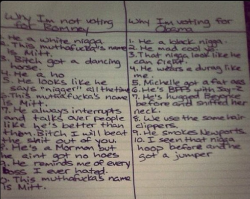 Why I'm not voting
for Romney
1. He a white nigga
2. This muthafucka's name
is Mitt.
3. Bitch got a dancing
horse.
4. He a ho
5. He looks like he
says "nigger" all the time
6. This muthafucka's name
is Mitt.
7. He always interrupts
and talks over people
like he's better than
them. Bitch I will beat
the shit out of you
8. He's a Mormon but
he aint got no hoes
9. He reminds me of every
boss I ever hated.
10. This muthafucka's name
is Mitt.
Why I'm voting for
Obama
1. He a black nigga.
2. He mad cool
3. That nigga look like he
can fight.
4. He wears a durag like
me.
5. Michelle got a fat ass
6. He's BFFs with Jay-Z
7. He's hugged Beyonce
before and sniffed her
neck.
8. We use the same hair
clippers.
9. He smokes Newports
10. I seen that nigga
hoop before and he
got a jumper